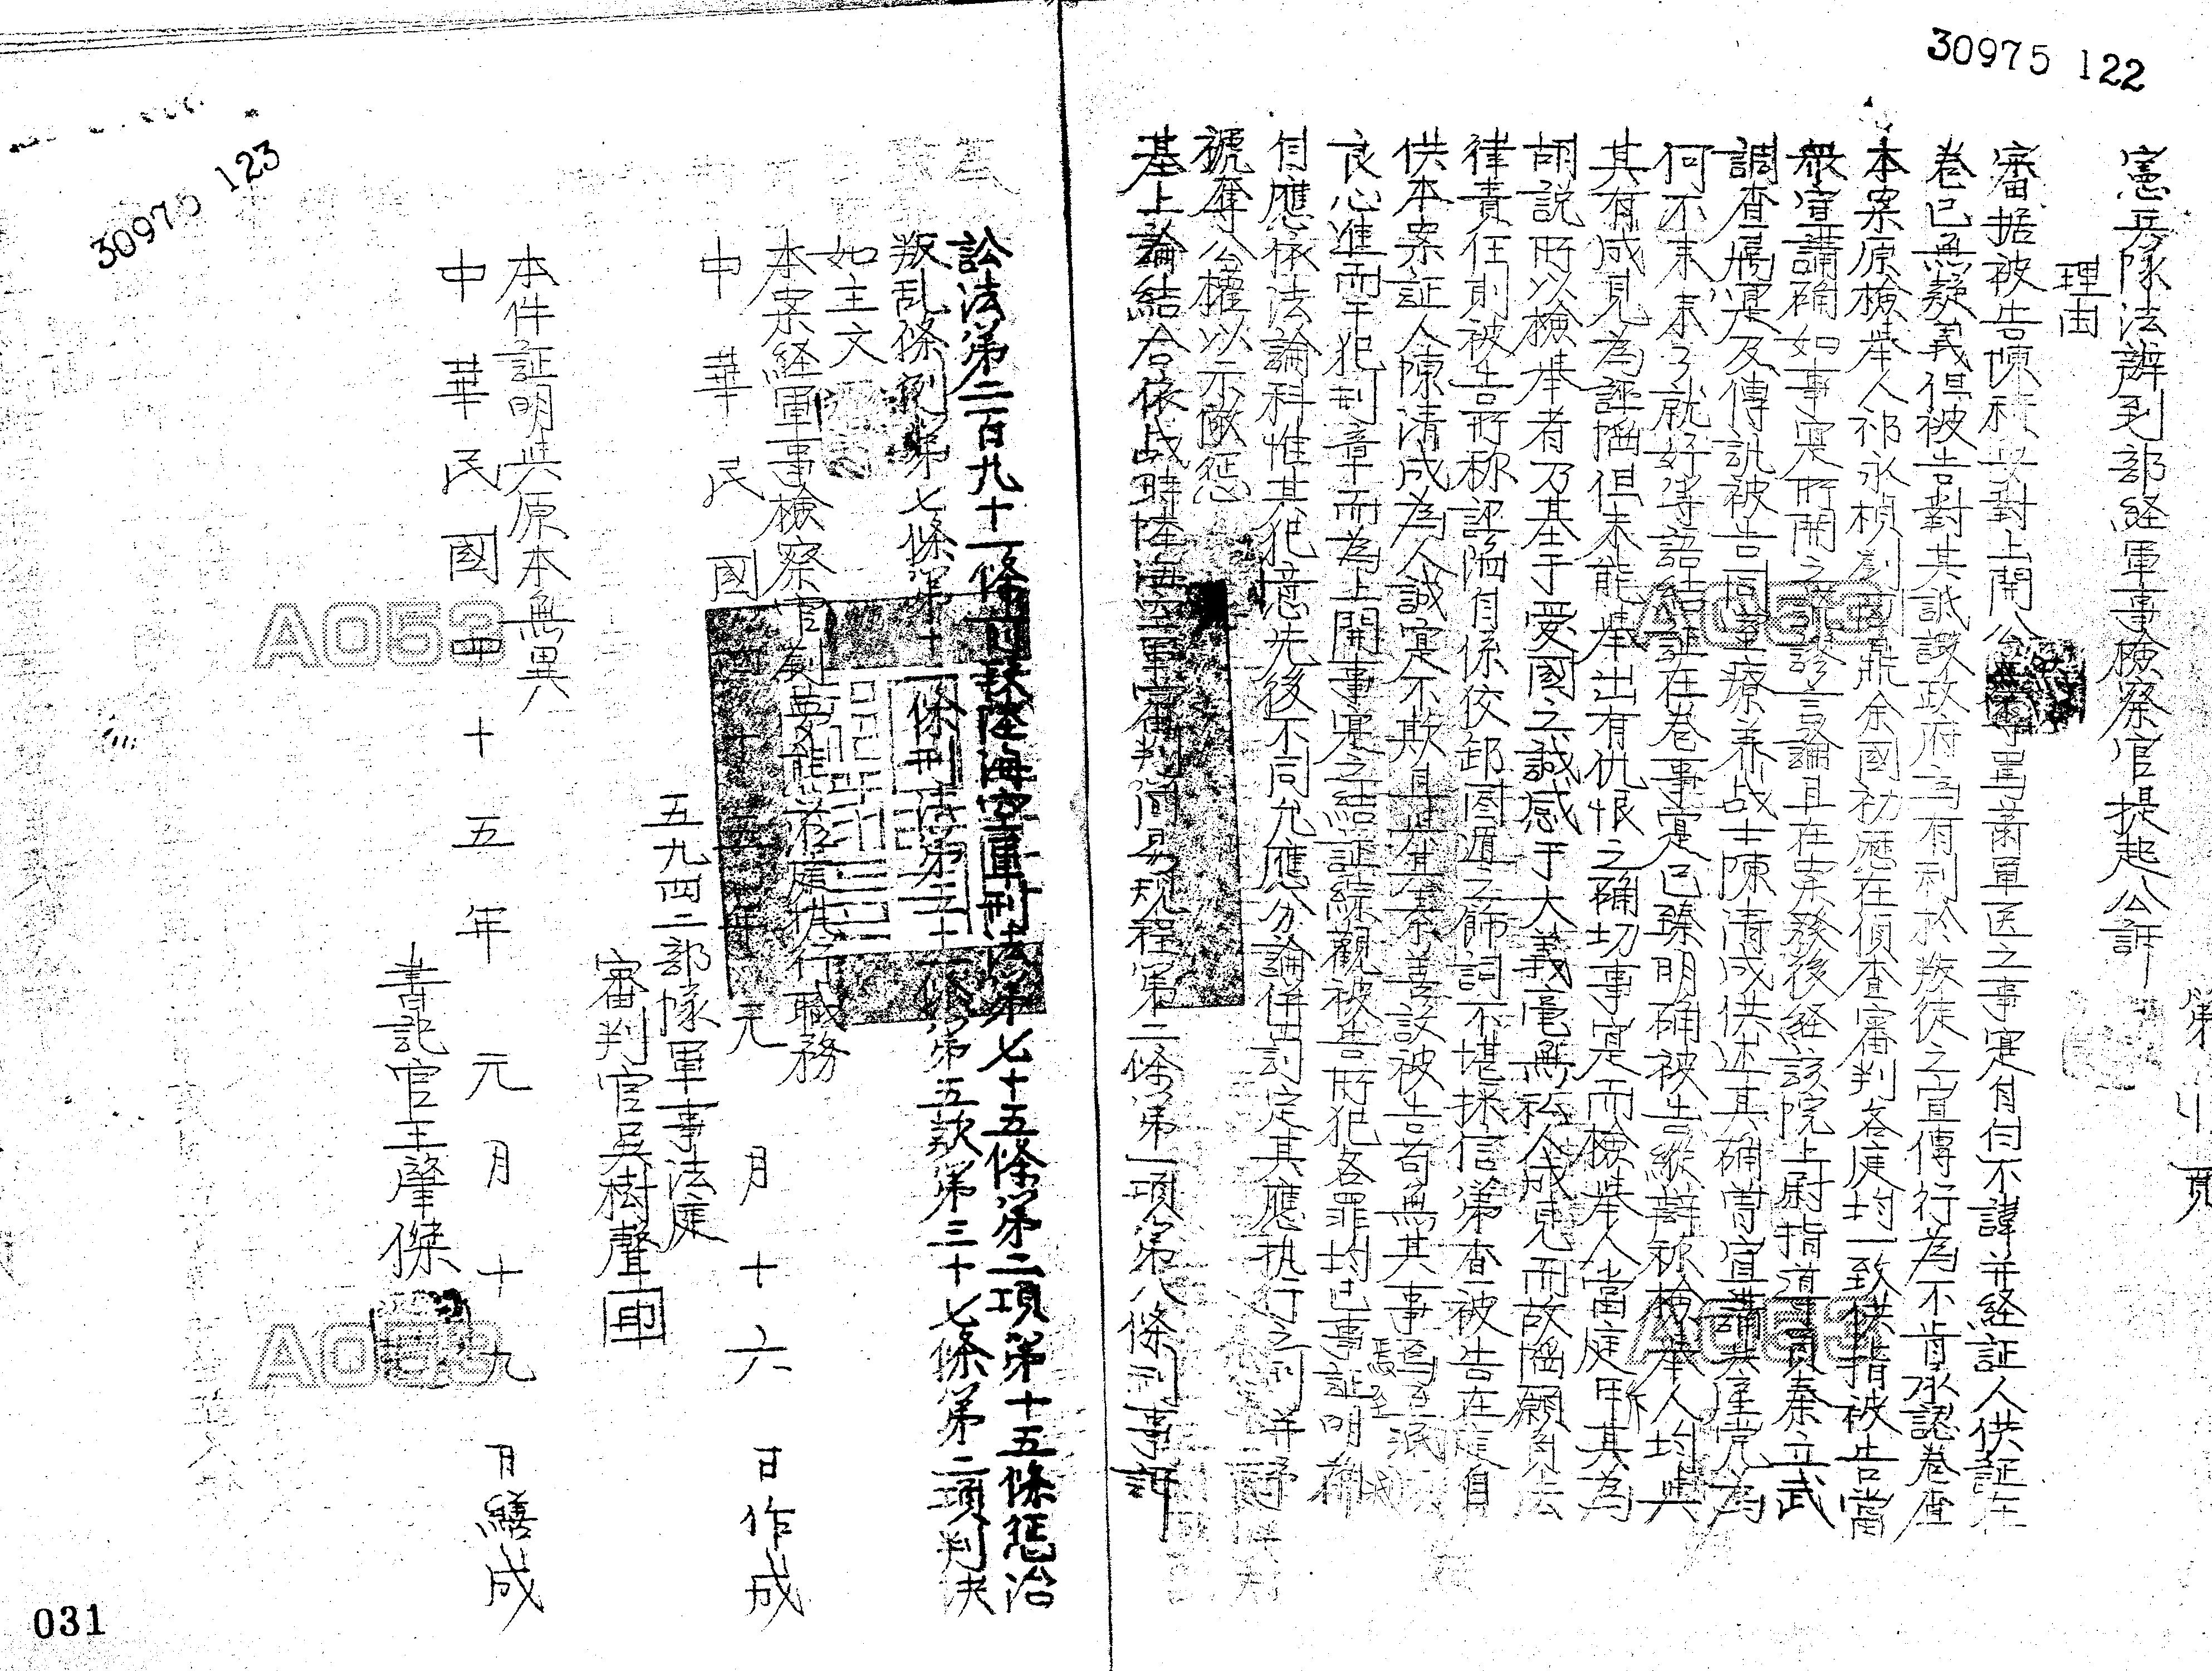 30975 122
第 頁
憲兵隊法辦到部経軍事檢察官提起公訴
理由
審据被告陳 對上開公 辱罵前軍医之事寔自白不諱并経証人供証在
卷已無疑義但被告對其詆譭政府為有利於叛徒之宣傳行為不肯承認卷查
本案原檢舉人祁永楨劉 鼎余國初歷在偵查審判各庭均一致供指被告當
衆宣講確如事寔所開之 言論且在案發後経該院上尉指導員秦立武
調查屬寔及傳訊被告同室療養战士陳清成供述其确曾宣講共産党為
何不来来了就好等語結証在卷事寔已臻明确被告縱辞称檢舉人均與
其有成見為誣搆但未能舉出有仇恨之确切事寔而檢舉人當庭斥其為
胡說所以檢舉者乃基于愛國之誠感于大義毫無私人成見而故陷願負法
律責任則被告所称誣陷自係佼卸圖遁之飾詞不堪採信第查被告在庭自
供本案証人陳清成為人誠寔不欺且與其素善設被告苟無其事焉 泯
良心進而干犯刑章而為上開事寔之結証綜觀被告所犯各罪均已事証明確
自應依法論科惟其犯意先後不同允應分論併罰定其應执行之刑并予
褫奪公權以示儆惩
基上論結合依战時陸海空軍審判简易规程第二條第一項第八條刑事訴
訟法第二百九十一條前段陸海空軍刑法第七十五條第二項第十五條惩治
叛乱條例第七條第十一條刑法第五十一條第五款第三十七條第二項判决
如主文
本案経軍事檢察官劉夢熊蒞庭执行職務
中華民國四十五年元月十六日作成
五九四二部隊軍事法庭
審判官吳樹聲印
本件証明與原本無異
中華民國四十五年元月十九日繕成
書記官王肇傑
30975 123
A053
A053
A053
A053
031